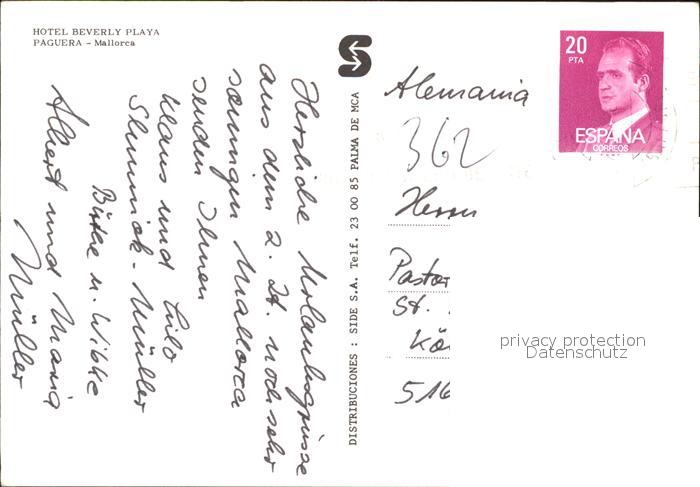 HOTEL BEVERLY PLAYA
PAGUERA - Mallorca
Herzliche Urlaubsgrüsse
aus dem z. Zt. noch sehr
sonnigen Mallorca
senden Ihnen
Klaus und
- Müller
u. Wibke
Albert und Maria
Müller
DISTRIBUCIONES : SIDE S.A. Telf. 23 00 85 PALMA DE MCA
S
20
PTA
ESPAÑA
CORREOS
Alemania
362
Herrn
Pastor
St.
Kö
516
privacy protection
Datenschutz